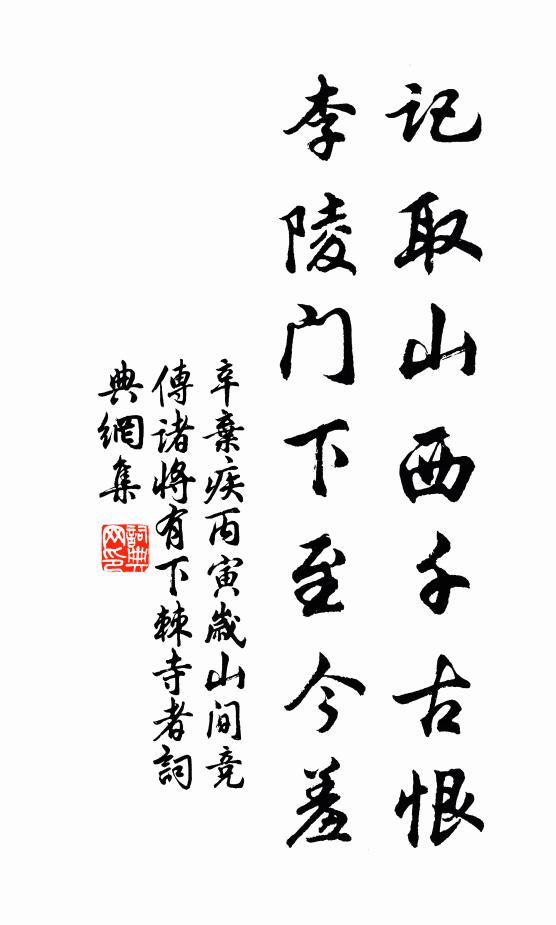 記取山西千古恨
李陵门下至今羞
辛棄疾丙寅嵗山间竞
傳諸将有下棘寺者詞
典網集
詞典
网印